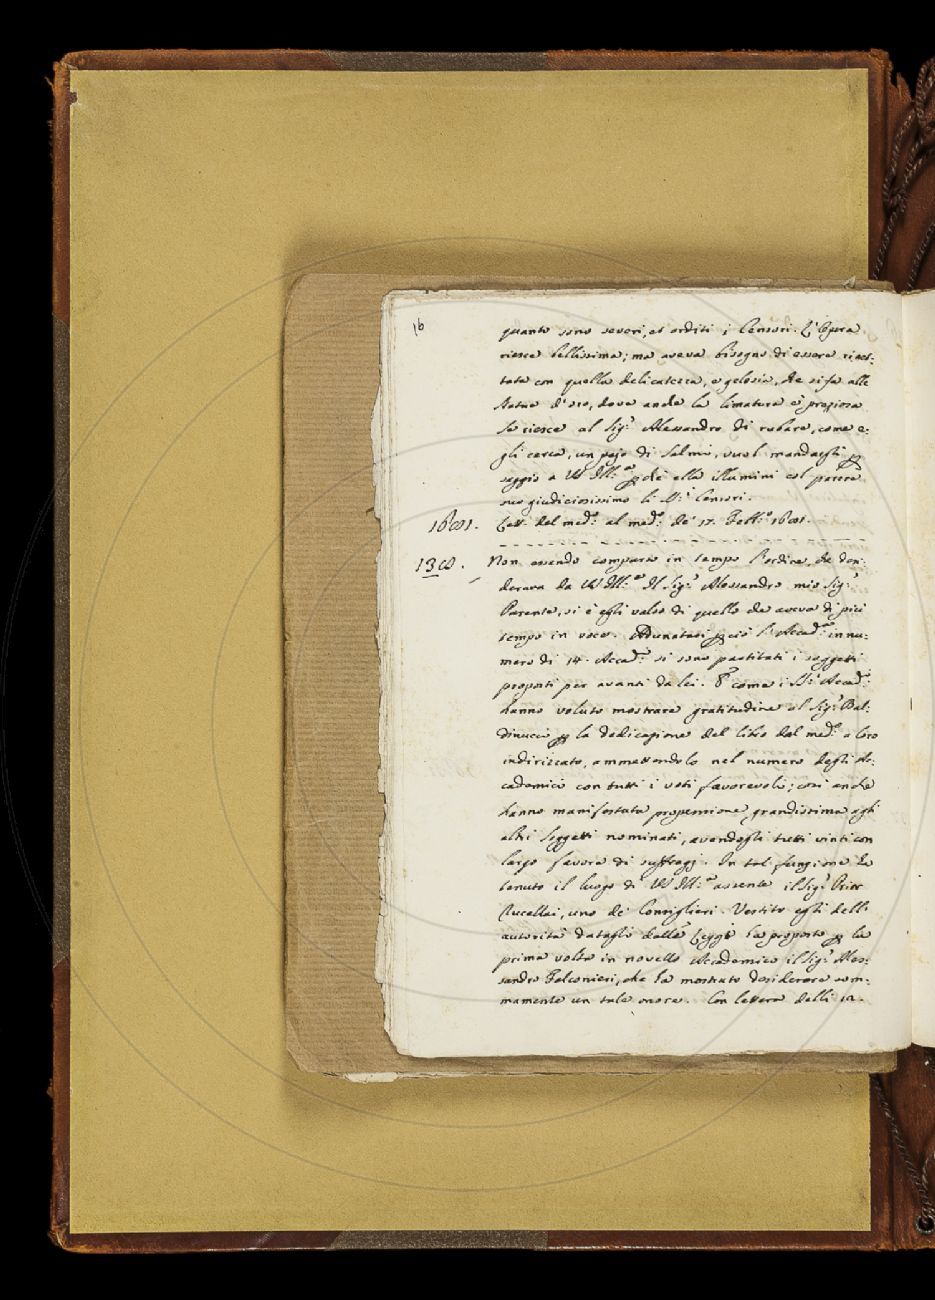 16
quanto sono severi, et arditi i Censori. L'Opera
riesce bellissima; ma aveva bisogno di essere riacet:
tata con quella delicatezza, e gelosia, che si fa alle
statue d'oro, dove anche la limatura è preziosa.
Se riesce al Sig.r Alessandro di rubare, come e:
gli cerca, un pajo di Salmi, vuol mandargli p
saggio a VS Ill.ma p chè ella illumini col parere
suo giudiciosissimo li SS.i Censori.
1681. Lett. del med.o al med.o de' 17. Febb.o 1681.
138. Non essendo comparso in tempo l'ordine, che desi:
derava da VS Ill.ma Il Sig.r Alessandro mio Sig.r
Parente, si è egli valso di quello che aveva di più
tempo in voce. Adunatasi p ciò l'Accad.a in nu:
mero di 14. Accad.i si sono partitati i soggetti
proposti per avanti da lei. E come i SS.i Accad.i
hanno voluto mostrare gratitudine al Sig.r Bal:
dinucci p la dedicazione del libro dal med.o a loro
indirizzato, ammettendolo nel numero degli Ac:
cademici con tutti i voti favorevoli; così anche
hanno manifestata propensione grandissima agli
altri soggetti nominati, avendogli tutti vinti con
largo favore di suffragj. In tal funzione ha
tenuto il luogo di VS Ill.ma assente il Sig.r Prior
Rucellai, uno de' Consiglieri. Vestito egli dell'
autorità datagli dalle Leggi ha proposto p la
prima volta in novello Accademico il Sig.r Ales:
sandro Falconieri, che ha mostrato desiderare som:
mamente un tale onore. Con lettera delli 12.